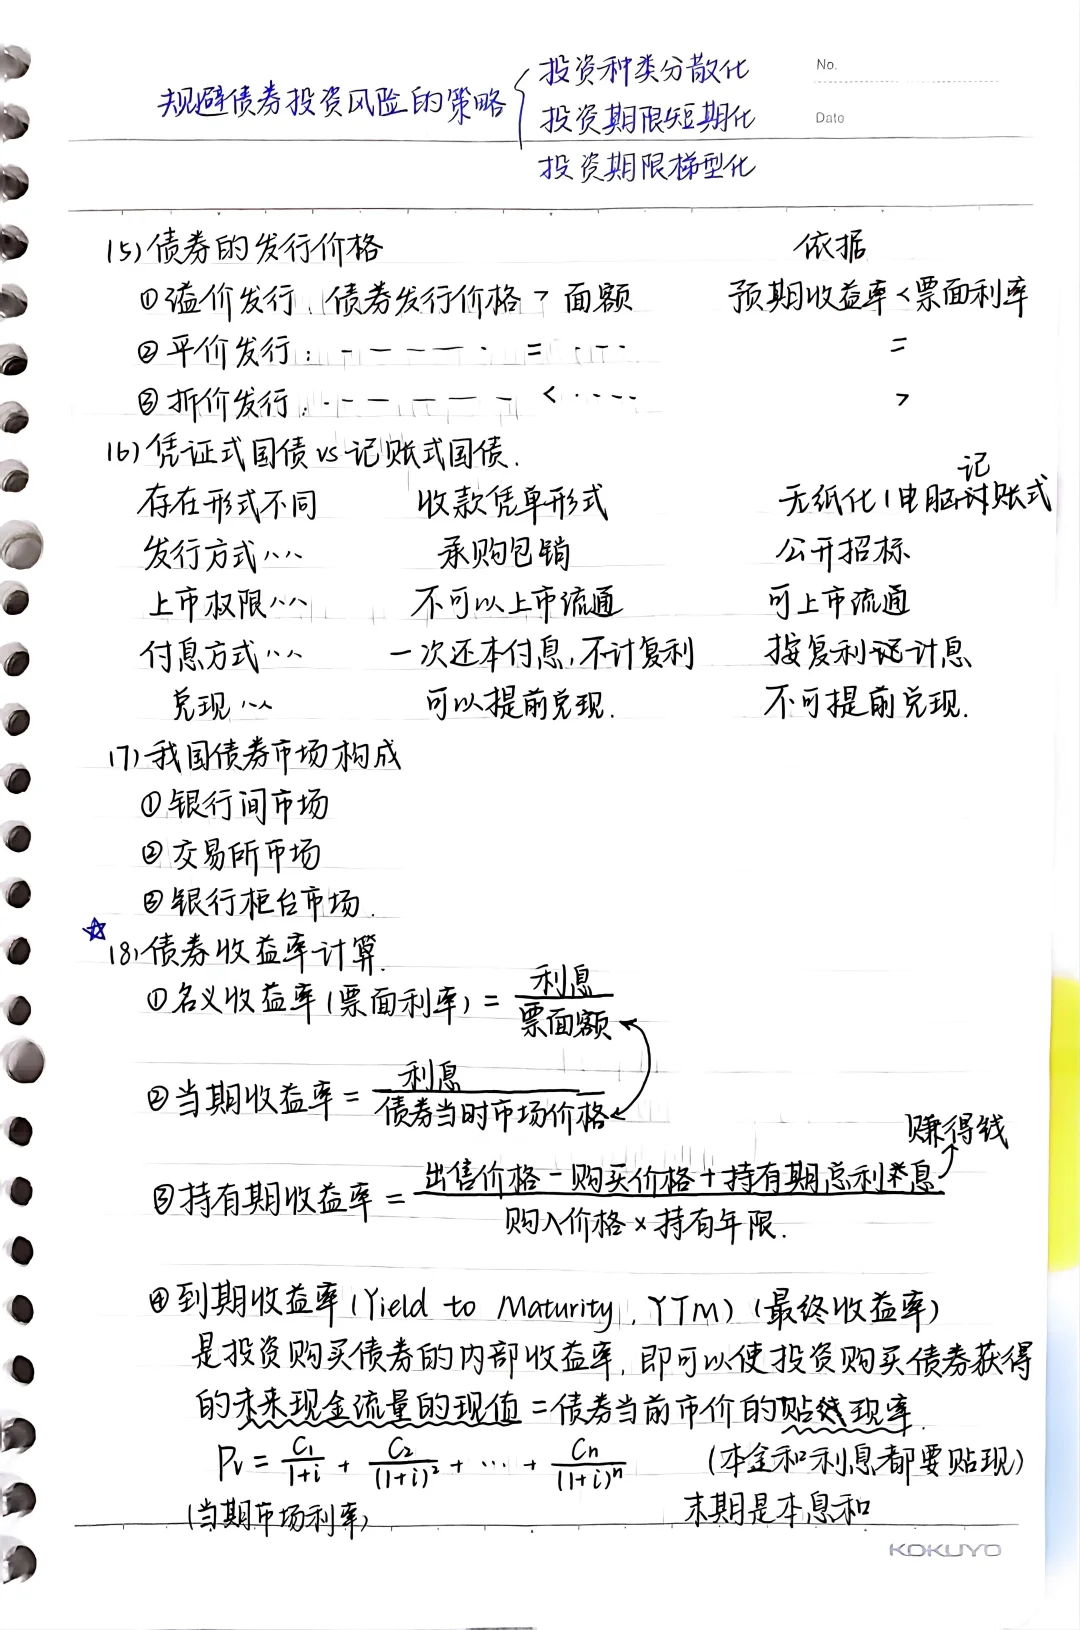 No.
Date
规避债券投资风险的策略
投资种类分散化
投资期限短期化
投资期限梯型化
15)债券的发行价格 依据
①溢价发行:债券发行价格 > 面额 预期收益率<票面利率
②平价发行: ----- = ---- =
③折价发行: ------ < ---- >
16)凭证式国债 vs 记账式国债.
记
存在形式不同 收款凭单形式 无纸化(电脑账式
发行方式... 承购包销 公开招标
上市权限... 不可以上市流通 可上市流通
付息方式... 一次还本付息,不计复利 按复利计息
兑现... 可以提前兑现. 不可提前兑现.
17)我国债券市场构成
①银行间市场
②交易所市场
③银行柜台市场.
☆
18)债券收益率计算.
①名义收益率(票面利率) = 利息 / 票面额
②当期收益率 = 利息 / 债券当时市场价格
赚得钱
③持有期收益率 = 出售价格 - 购买价格 + 持有期总利息 / 购入价格 × 持有年限.
④到期收益率(Yield to Maturity, YTM)(最终收益率)
是投资购买债券的内部收益率,即可以使投资购买债券获得
的未来现金流量的现值=债券当前市价的贴现率.
Pv = C1/(1+i) + C2/(1+i)² + … + Cn/(1+i)ⁿ (本金和利息都要贴现)
(当期市场利率) 末期是本息和
KOKUYO